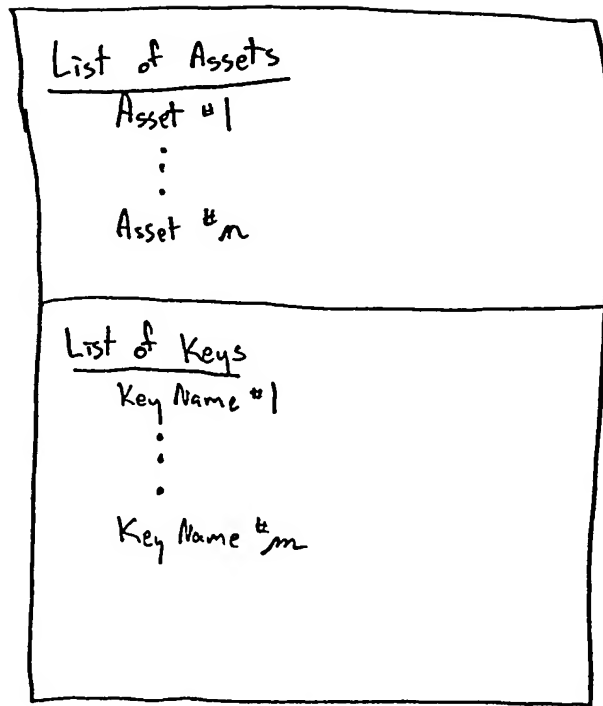 List of Assets
Asset #1
Asset #n
List of Keys
Key Name #1
Key Name #m